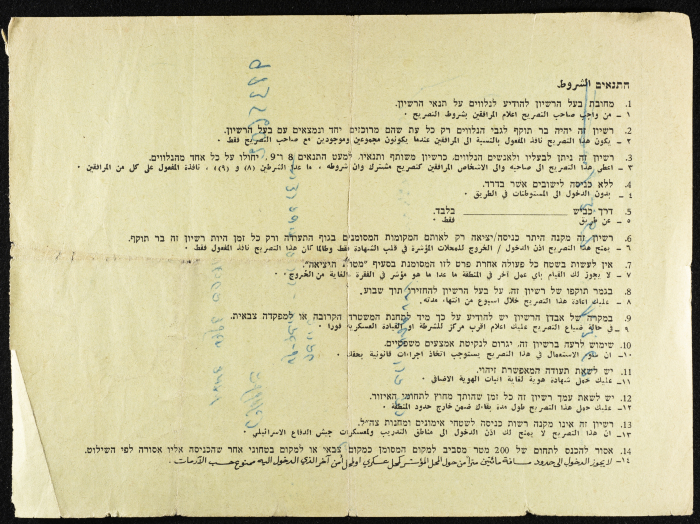 התנאים الشروط
1. מחובת בעל הרשיון להודיע לנלווים על תנאי הרשיון.
١ - من واجب صاحب التصريح اعلام المرافقين بشروط التصريح .
2. רשיון זה יהיה בר תוקף לגבי הנלווים רק כל עת שהם מרוכזים יחד ונמצאים עם בעל הרשיון.
٢ - يكون هذا التصريح نافذ المفعول بالنسبة الى المرافقين عندما يكونون مجموعين وموجودين مع صاحب التصريح فقط .
3. רשיון זה ניתן לבעליו ולאנשים הנלווים, כרשיון משותף ותנאיו, למעט התנאים 8 ו־9, יחולו על כל אחד מהנלווים.
٣ - اعطي هذا التصريح الى صاحبه والى الاشخاص المرافقين كتصريح مشترك وان شروطه ، ما عدا الشرطين (٨) و (٩) ، نافذة المفعول على كل من المرافقين .
4. ללא כניסה לישובים אשר בדרך.
٤ - بدون الدخول الى المستوطنات في الطريق .
5. דרך כביש ____________ בלבד.
٥ - عن طريق ____________ فقط .
6. רשיון זה מקנה היתר כניסה/יציאה רק לאותם המקומות המסומנים בגוף התעודה ורק כל זמן היות רשיון זה בר תוקף.
٦ - يمنح هذا التصريح اذن الدخول / الخروج للمحلات المؤشرة في قلب الشهادة فقط وطالما كان هذا التصريح نافذ المفعول فقط .
7. אין לעשות בשטח כל פעולה אחרת פרט לזו המסומנת בסעיף "מטרת היציאה".
٧ - لا يجوز لك القيام بأي عمل آخر في المنطقة ما عدا ما هو مؤشر في الفقرة "الغاية من الخروج" .
8. בגמר תוקפו של רשיון זה, על בעל הרשיון להחזירו תוך שבוע.
٨ - عليك اعادة هذا التصريح خلال اسبوع من انتهاء مدته .
9. במקרה של אבדן הרשיון יש להודיע על כך מיד לתחנת המשטרה הקרובה או למפקדה צבאית.
٩ - في حالة ضياع التصريح عليك اعلام اقرب مركز للشرطة او القيادة العسكرية فورا .
10. שימוש לרעה ברשיון זה, יגרום לנקיטת אמצעים משפטיים.
١٠ - ان سوء الاستعمال في هذا التصريح يستوجب اتخاذ اجراءات قانونية بحقك .
11. יש לשאת תעודה המאפשרת זיהוי.
١١ - عليك حمل شهادة هوية لغاية اثبات الهوية الاضافي .
12. יש לשאת עמך רשיון זה כל זמן שהותך מחוץ לתחומי האיזור.
١٢ - عليك حمل هذا التصريح طول مدة بقائك ضمن خارج حدود المنطقة .
13. רשיון זה אינו מקנה רשות כניסה לשטחי אימונים ומחנות צה"ל.
١٣ - ان هذا التصريح لا يمنح لك اذن الدخول الى مناطق التدريب ولمعسكرات جيش الدفاع الاسرائيلي .
14. אסור להכנס לתחום של 200 מטר מסביב למקום המסומן כמקום צבאי או למקום בטחוני אחר שהכניסה אליו אסורה לפי השילוט.
١٤ - لا يجوز الدخول الى حدود مسافة مائتين مترا من حول المحل المؤشر كمحل عسكري او لمحل أمن آخر الذي الدخول اليه ممنوع حسب اللافتات .